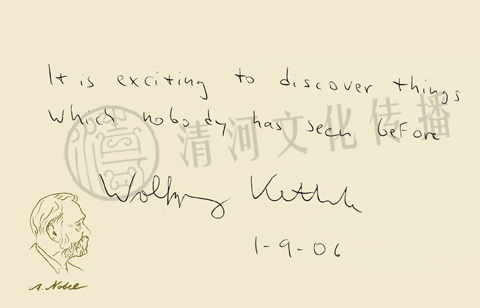 It is exciting to discover things
which nobody has seen before
清河文化传播
Wolfgang Ketterle
1-9-06
A. Nobel